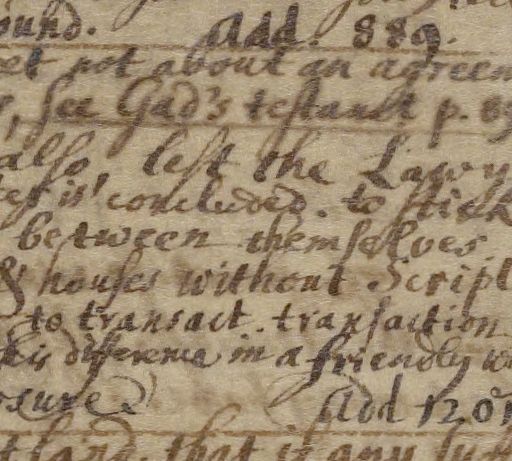 ound. Add. 889.
eet not about an agreem
see Gad's testam̄t p. 89
also, lest the Lawy
is concluded. to stick
between themselves.
& houses without Script
to transact. transaction
his difference in a friendly w
sure Add 1201
that if any